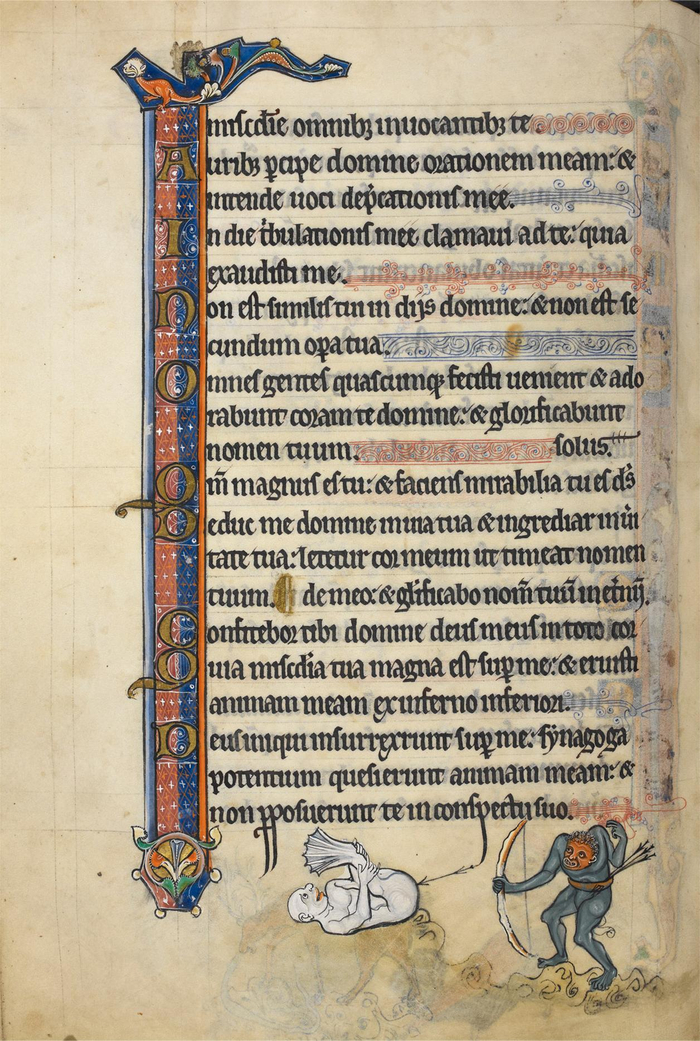 misc̄die omnibꝫ inuocantibꝫ te.
Auribꝫ ꝑcipe domine orationem meam: &
intende uoci dep̄cationis mee.
In die t̾bulationis mee clamaui ad te: quia
exaudisti me.
Non est similis tui in dijs domine: & non est se
cundum oꝑa tua.
Omnes gentes quascumqꝫ fecisti uenient & ado
rabunt coram te domine: & glorificabunt
nomen tuum. solus.
Qm̄ magnus es tu: & faciens mirabilia tu es ds̄
Deduc me domine in uia tua & ingrediar in
tate tua: letetur cor meum ut timeat nomen
tuum. de meo: & gl̄ificabo nom̄ tuū
Confitebor tibi domine deus meus in toto cor
Quia misc̄dia tua magna est suꝑ me: & eruisti
animam meam ex inferno inferiori.
Deus iniqui insurrexerunt suꝑ me: synagoga
potentium quesierunt animam meam: &
non ꝓposuerunt te in conspectu suo.